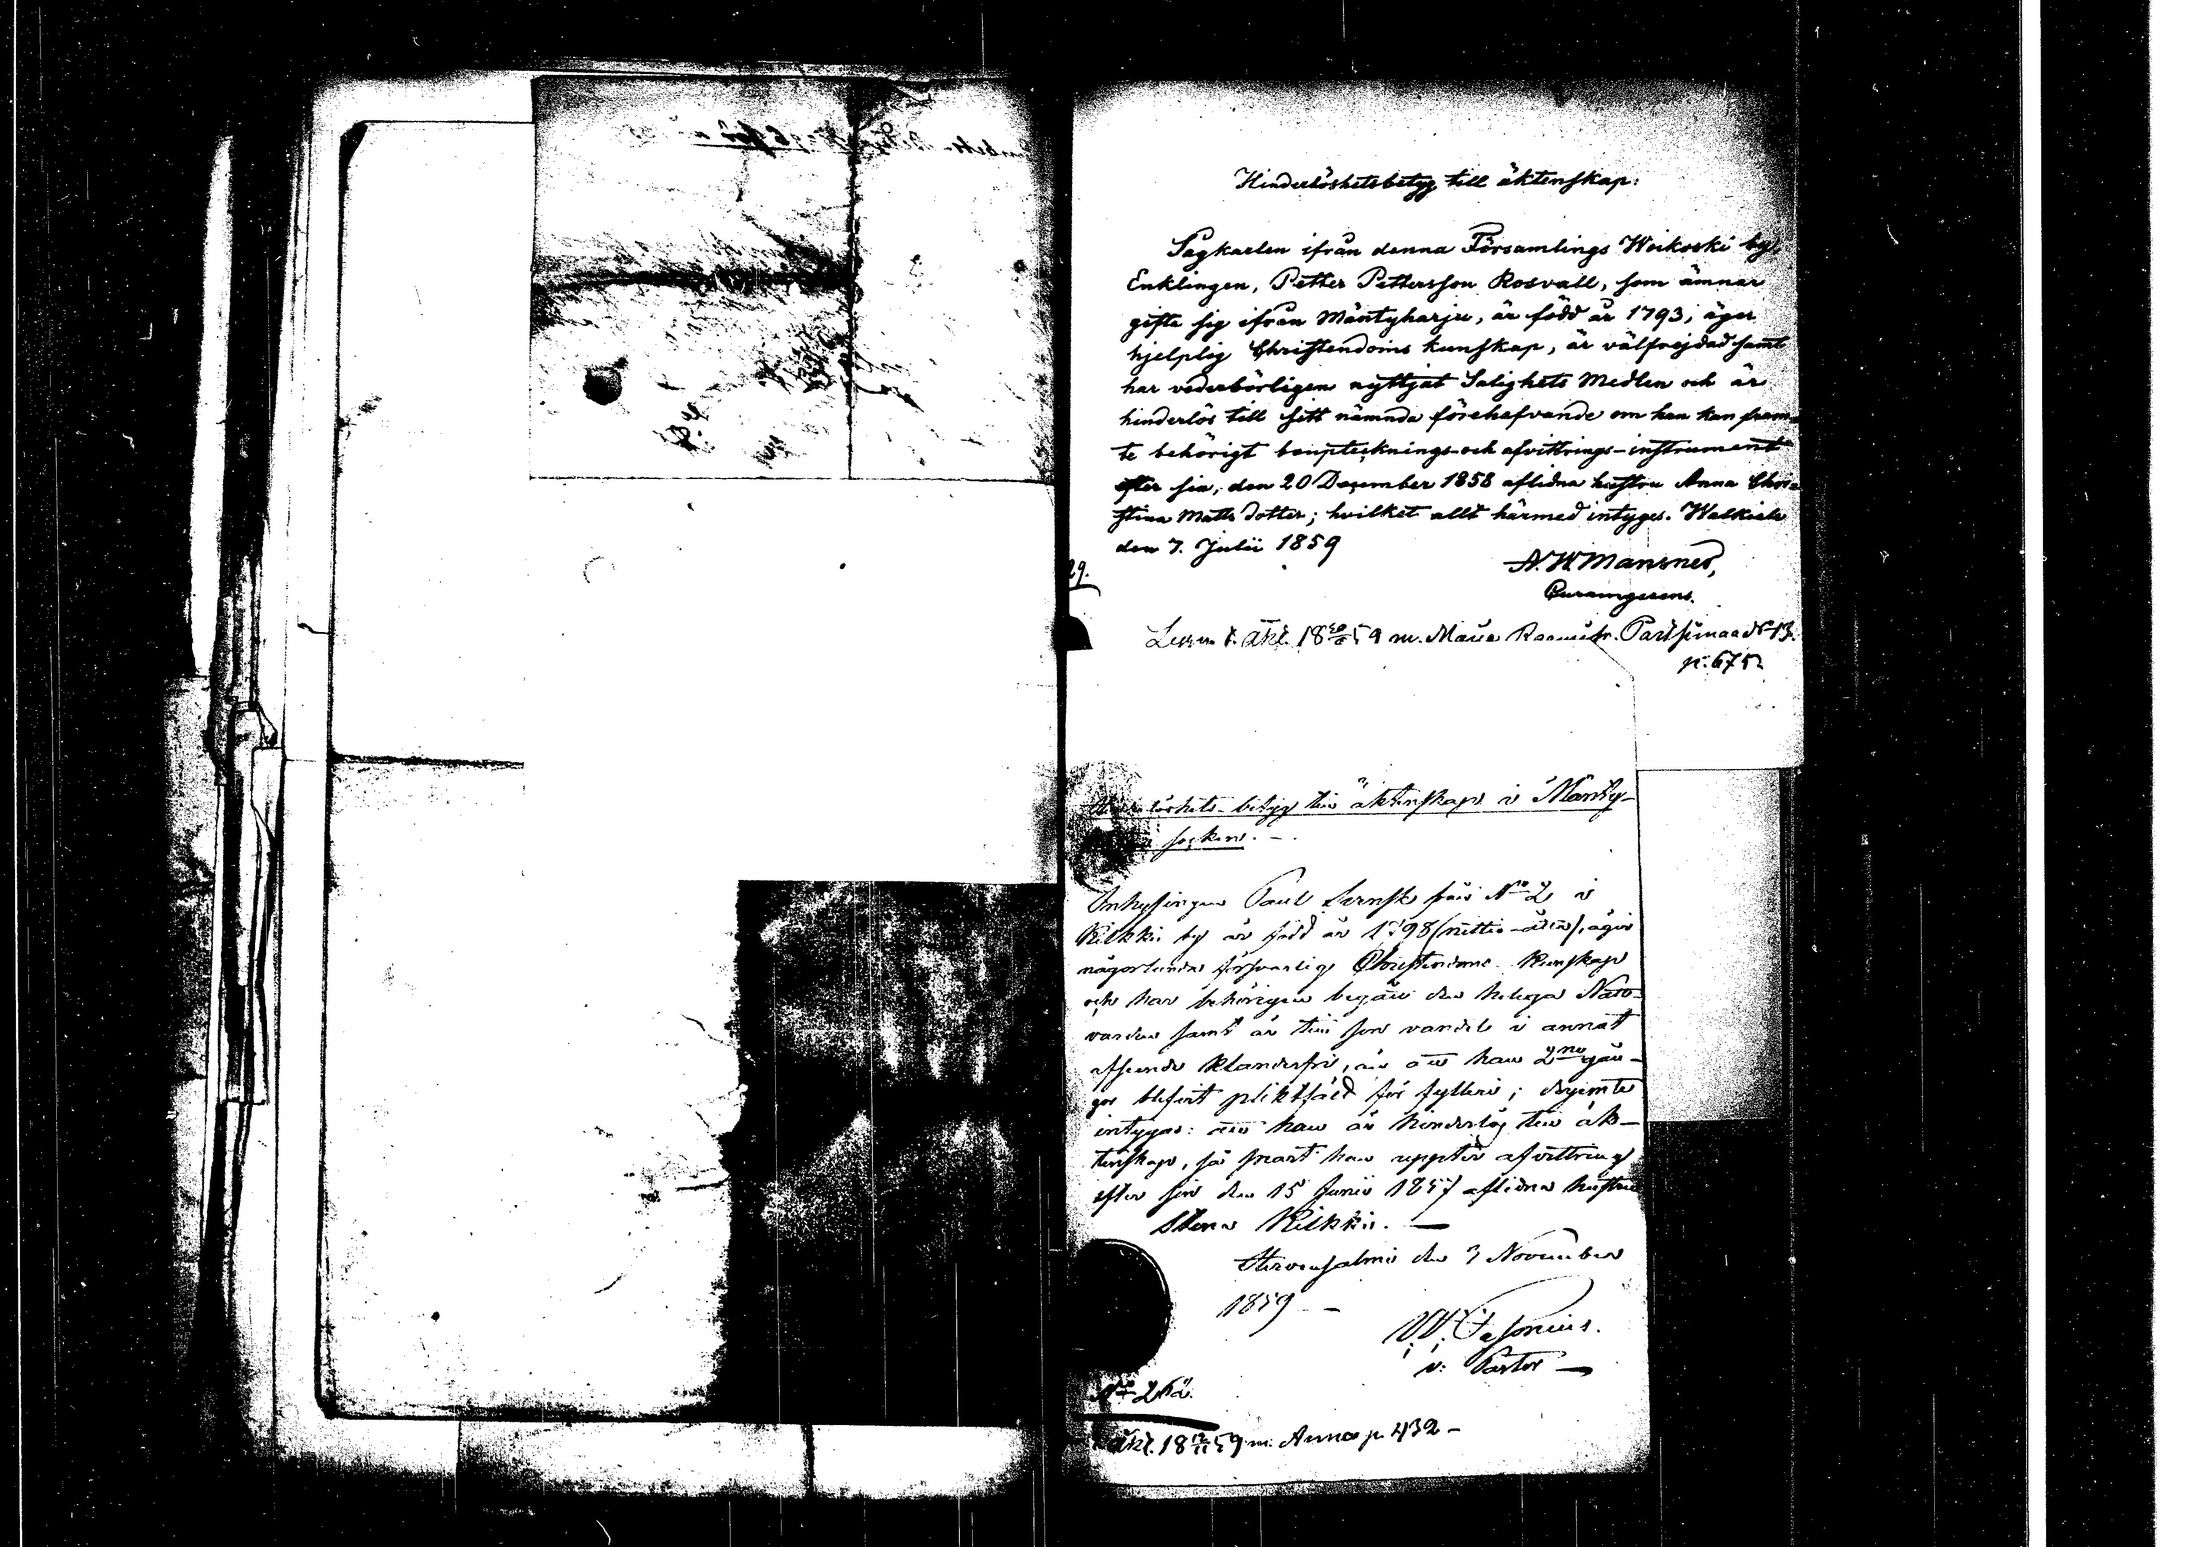 Hinderlöshetsbetyg till äktenskap:
Sågkarlen ifrån denna Församlings Woikoski by,
Enklingen, Petter Pettersson Rosvall, som ämnar
gifta sig ifrån Mäntyharju, är född år 1793, äger
hjelplig Christendoms kunskap, är välfrejdad samt
har vederbörligen nyttjat Salighets Medlen och är
hinderlös till sitt nämnda förehafvande om han kan fram-
te behörigt bouptecknings- och afvittrings-instrument
efter sin, den 20 December 1858 aflidna hustru Anna Chri-
stina Matts dotter; hvilket allt härmed intygas. Walkiala
den 7. Julii 1859
29.
A. W. Mansner,
Curamgerens.
t. äkt. 18 59 m. Maria Partsimaa № 13.
p. 675
betyg till äktenskap i Mänty-
socken. -
Inhysingen Paul Svensk från № 2 i
Kilkki by är född år 1798 (nittio-åtta), äger
någorlunda försvarlig Christendoms Kunskap
och har behörigen begått den heliga Natt-
varden samt är till sin vandel i annat
afseende klanderfri, än att han 2ne gån-
gor blifvit pliktfäld för fylleri; derjemte
intygas: att han är hinderlös till äk-
tenskap, så snart han upptett afvittring
efter sin den 15 Junii 1857 aflidna hustru
Stina Kilkki. —
Hirvensalmi den 3 November
1859 -
v: Pastor —
äkt. 18 59 m. Anna p. 432 -